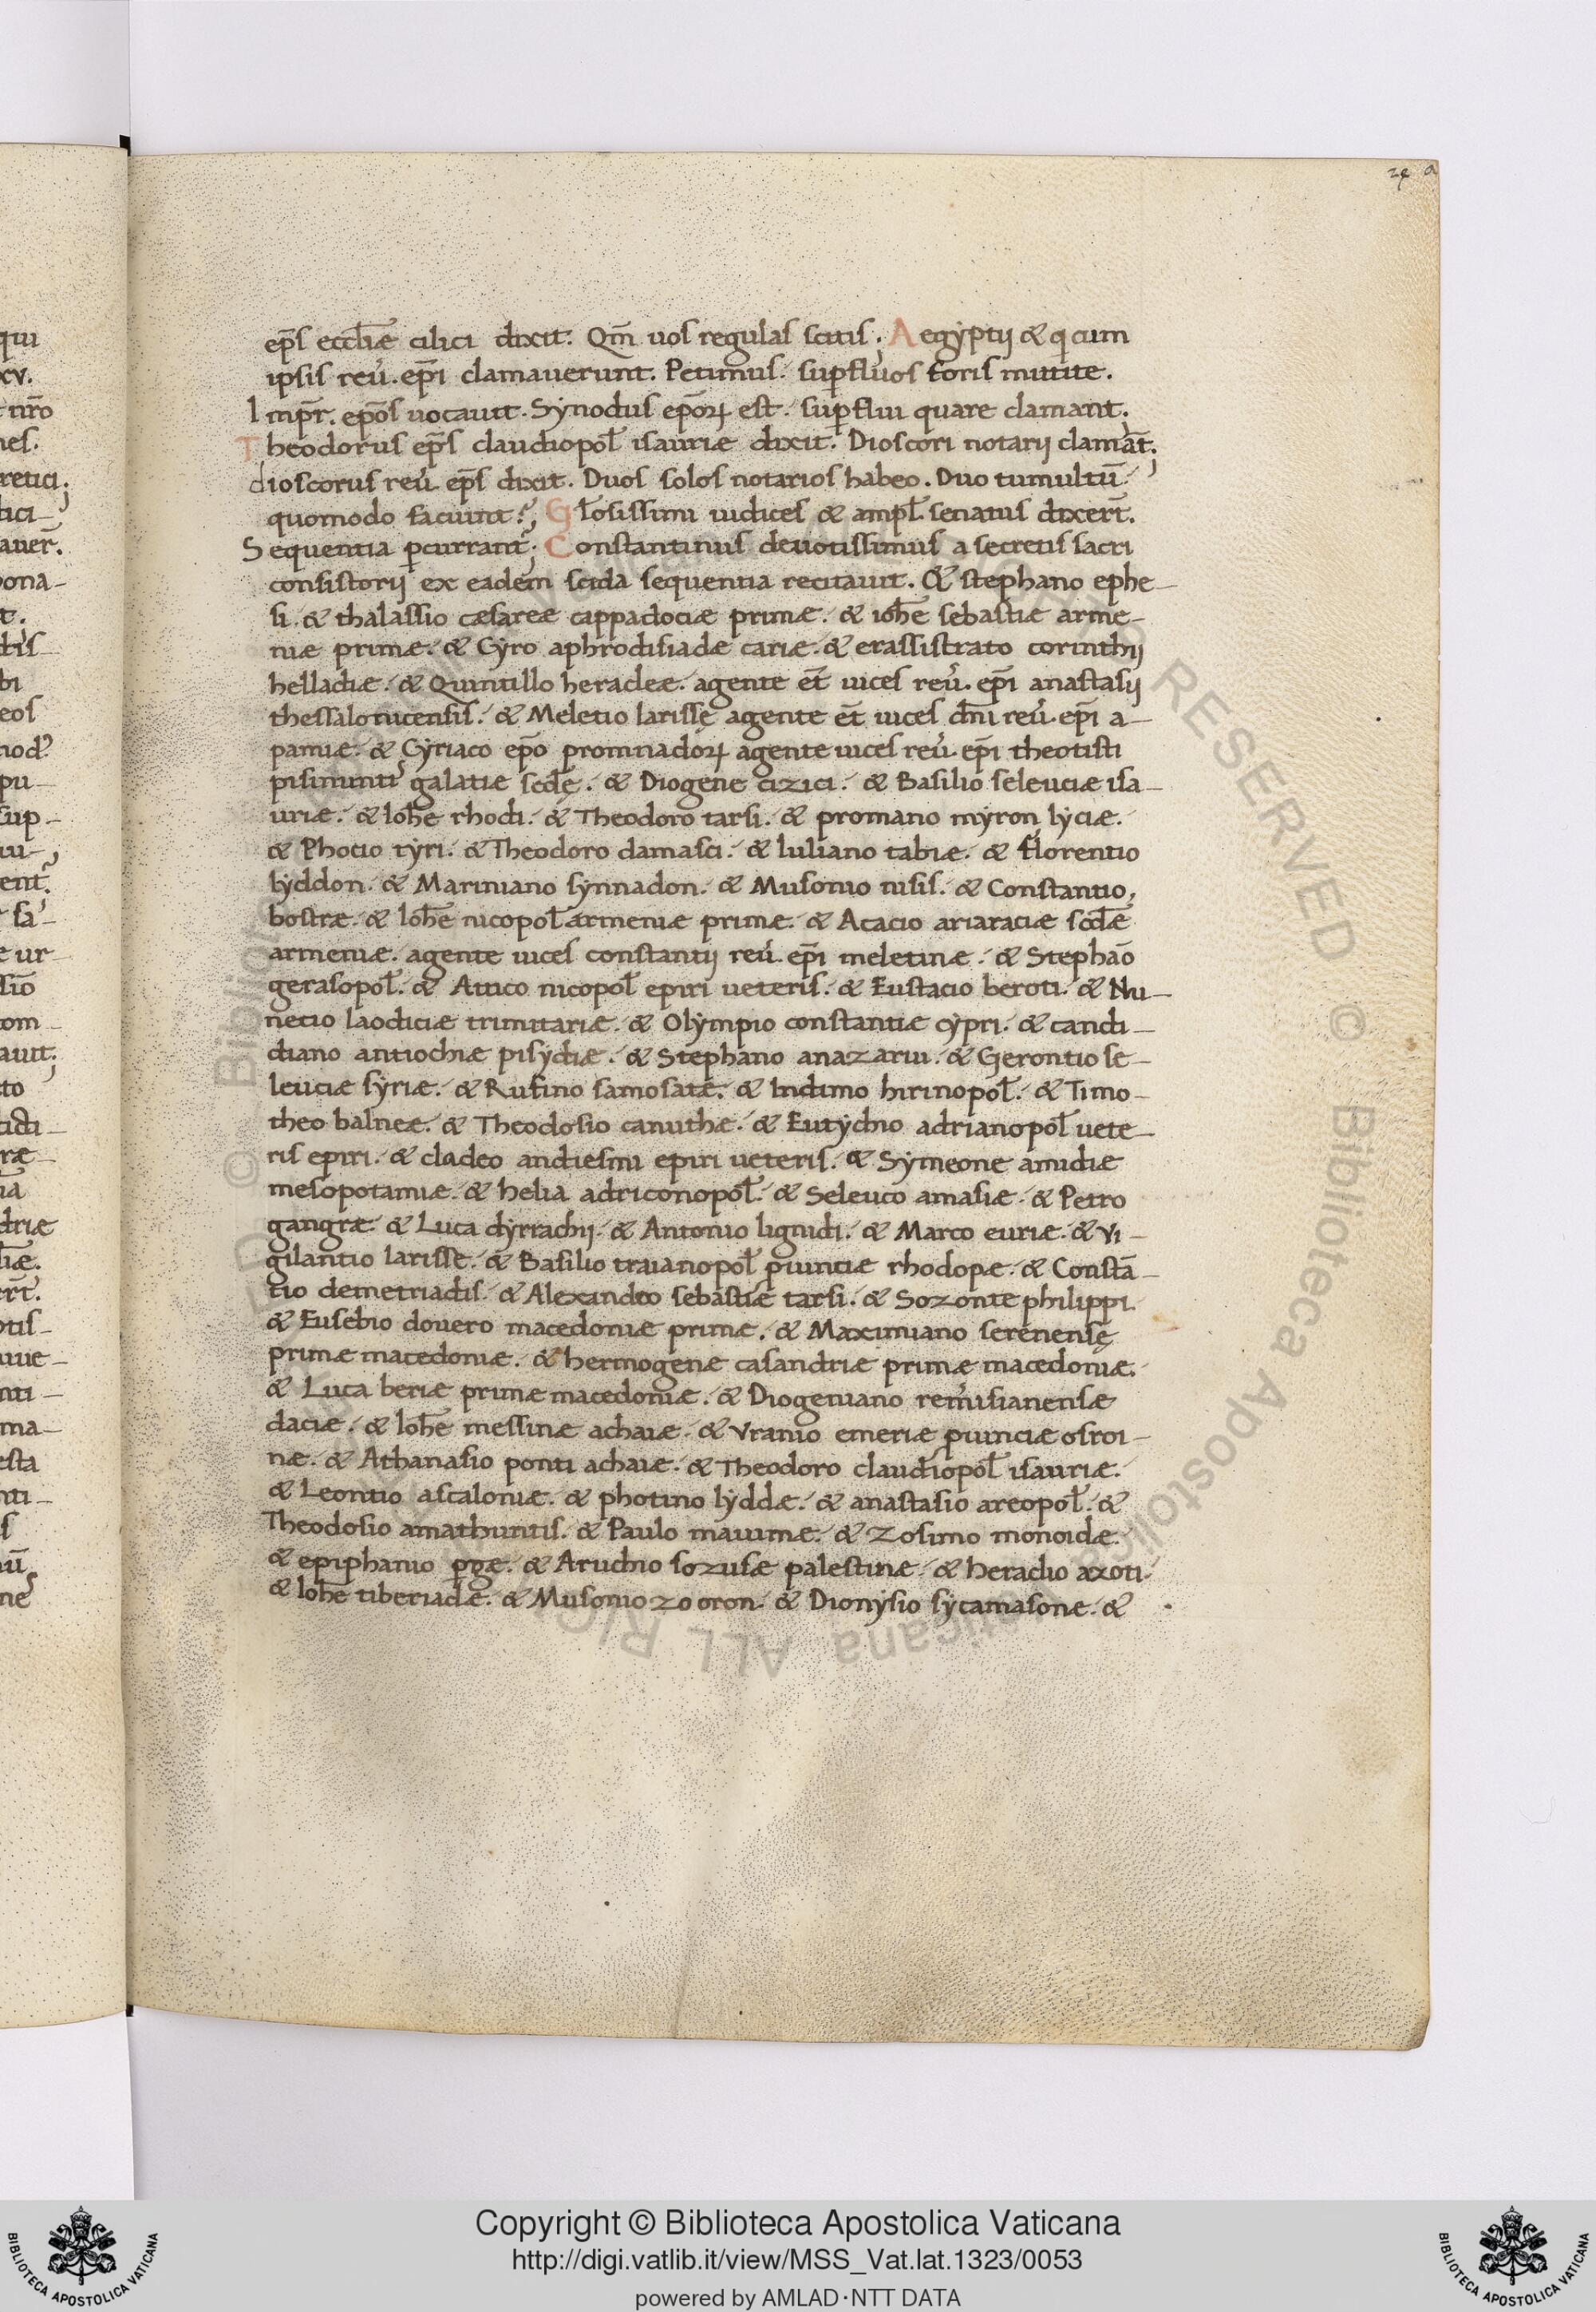 24 a
ep̄s eccl̄iæ cilici dixit. Qm̄ uos regulas scitis; Aegyptij & q cum
ipsis reu̓. ep̄i clamauerunt. Petimus. supfluos foris mittite.
Imp̄r. ep̄os uocauit. Synodus ep̄oꝝ est. supflui quare clamant;
Theodorus ep̄s claudiopol̄ isauriæ dixit. Dioscori notarij clamāt;
dioscorus reu̓ ep̄s dixit. Duos solos notarios habeo. Duo tumultū
quomodo faciunt?; Gl̄osissimi iudices & ampl̄ senatus dixer̄t.
Sequentia ꝑcurrant; Constantinus deuotissimus a secretis sacri
consistorij ex eadem scida sequentia recitauit. & stephano ephe-
si. & thalassio cæsareæ cappadociæ primæ. & ioh̄e sebastiæ arme-
niæ primæ. & Cyro aphrodisiadæ cariæ. & erassistrato corinthij
helladiæ. & Quintillo heracleæ. agente et̄ uices reu̓. ep̄i anastasij
thessalonicensis. & Meletio larissę agente et̄ uices dm̄i reu̓. ep̄i a-
pamiæ. & Cyriaco ep̄o promnadoꝝ agente uices reu̓. ep̄i theotisti
pisinunti galatiæ scd̄ę. & Diogene cizici. & Basilio seleuciæ isa-
uriæ. & Ioh̄e rhodi. & Theodoro tarsi. & promano myron lyciæ.
& Photio tyri. & Theodoro damasci. & Iuliano tabiæ. & florentio
lyddon. & Mariniano synnadon. & Musonio nisis. & Constantio,
bostræ. & Ioh̄e nicopol̄ armeniæ primæ. & Acacio ariaraciæ scd̄æ
armeniæ. agente uices constantij reu̓. ep̄i meletinæ. & Stephāo
gerasopol̄. & Attico nicopol̄ epiri ueteris. & Eustacio beroti. & Nu-
necio laodiciæ trimitariæ. & Olympio constantiæ cypri. & candi-
diano antiochiæ pisydiæ. & Stephano anazarui. & Gerontio se-
leuciæ syriæ. & Rufino samosatæ. & Indimo hirinopol̄. & Timo-
theo balneæ. & Theodosio canuthæ. & Eutychio adrianopol̄ uete-
ris epiri. & cladeo andiesmi epiri ueteris. & Symeone amidiæ
mesopotamiæ. & helia adriconopol̄. & Seleuco amasiæ. & Petro
gangræ. & Luca dyrrachij. & Antonio lignidi. & Marco euriæ. & Vi-
gilantio larissę. & Basilio traianopol̄ ꝓuintiæ rhodopæ. & Constā-
tio demetriadis. & Alexandro sebastiæ tarsi. & Sozonte philippi.
& Eusebio douero macedoniæ primæ. & Maximiano serenensę
primæ macedoniæ. & hermogenæ casandriæ primæ macedoniæ.
& Luca beriæ primæ macedoniæ. & Diogeniano remisianensæ
daciæ. & Ioh̄e messinæ achaiæ. & Vranio emeriæ ꝓuinciæ osroi-
næ. & Athanasio ponti achaiæ. & Theodoro claudiopol̄ isauriæ.
& Leontio ascaloniæ. & photino lyddæ. & anastasio areopol̄. &
Theodosio amathuntis. & Paulo maiumæ. & Zosimo monoidæ.
& epiphanio ꝑgæ. & Aruchio sozusæ palestinæ. & heraclio axoti.
& Ioh̄e tiberiadæ. & Musonio zooron. & Dionysio sycamasonæ. &
Copyright © Biblioteca Apostolica Vaticana
http://digi.vatlib.it/view/MSS_Vat.lat.1323/0053
powered by AMLAD·NTT DATA